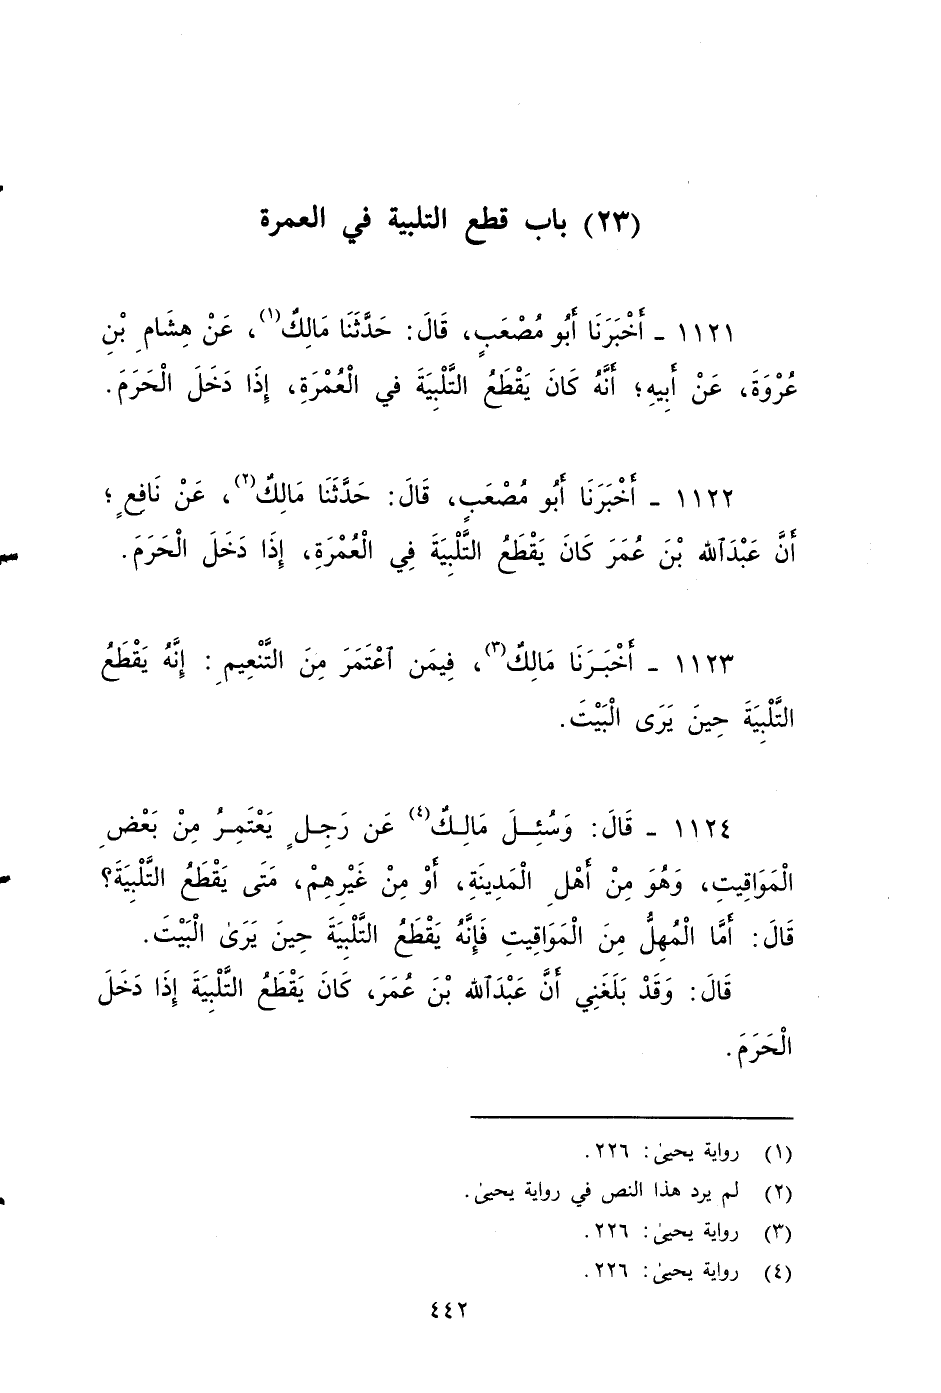 (٢٣) باب قطع التلبية في العمرة
١١٢١ ـ أَخْبَرَنَا أَبُو مُصْعَبٍ، قَالَ: حَدَّثَنَا مَالِكٌ(١)، عَنْ هِشَامِ بْنِ
عُرْوَةَ، عَنْ أَبِيهِ؛ أَنَّهُ كَانَ يَقْطَعُ التَّلْبِيَةَ في الْعُمْرَةِ، إِذَا دَخَلَ الْحَرَمَ.
١١٢٢ ـ أَخْبَرَنَا أَبُو مُصْعَبٍ، قَالَ: حَدَّثَنَا مَالِكٌ(٢)، عَنْ نَافِعٍ؛
أَنَّ عَبْدَٱللهِ بْنَ عُمَرَ كَانَ يَقْطَعُ التَّلْبِيَةَ فِي الْعُمْرَةِ، إِذَا دَخَلَ الْحَرَمَ.
١١٢٣ ـ أَخْبَرَنَا مَالِكٌ(٣)، فِيمَن ٱعْتَمَرَ مِنَ التَّنْعِيمِ: إِنَّهُ يَقْطَعُ
التَّلْبِيَةَ حِينَ يَرَى الْبَيْتَ.
١١٢٤ ـ قَالَ: وَسُئِلَ مَالِكٌ(٤) عَن رَجِلٍ يَعْتَمِرُ مِنْ بَعْضِ
الْمَوَاقِيتِ، وَهُوَ مِنْ أَهْلِ الْمَدِينَةِ، أَوْ مِنْ غَيْرِهِمْ، مَتَى يَقْطَعُ التَّلْبِيَةَ؟
قَالَ: أَمَّا الْمُهِلُّ مِنَ الْمَوَاقِيتِ فَإِنَّهُ يَقْطَعُ التَّلْبِيَةَ حِينَ يَرَىٰ الْبَيْتَ.
قَالَ: وَقَدْ بَلَغَنِي أَنَّ عَبْدَٱللهِ بْنَ عُمَرَ، كَانَ يَقْطَعُ التَّلْبِيَةَ إِذَا دَخَلَ
الْحَرَمَ.
(١) رواية يحيىٰ: ٢٢٦.
(٢) لم يرد هذا النص في رواية يحيىٰ.
(٣) رواية يحيىٰ: ٢٢٦.
(٤) رواية يحيىٰ: ٢٢٦.
٤٤٢